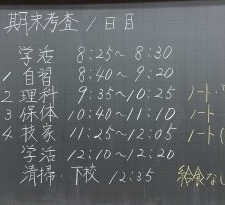 期末考査 1日目
学活 8:25～8:30
1 自習 8:40～9:20
2 理科 9:35～10:25 ノート・
3 保体 10:40～11:10 ノート
4 技家 11:25～12:05 ノート(
学活 12:10～12:20
清掃・下校 12:35 給食なし